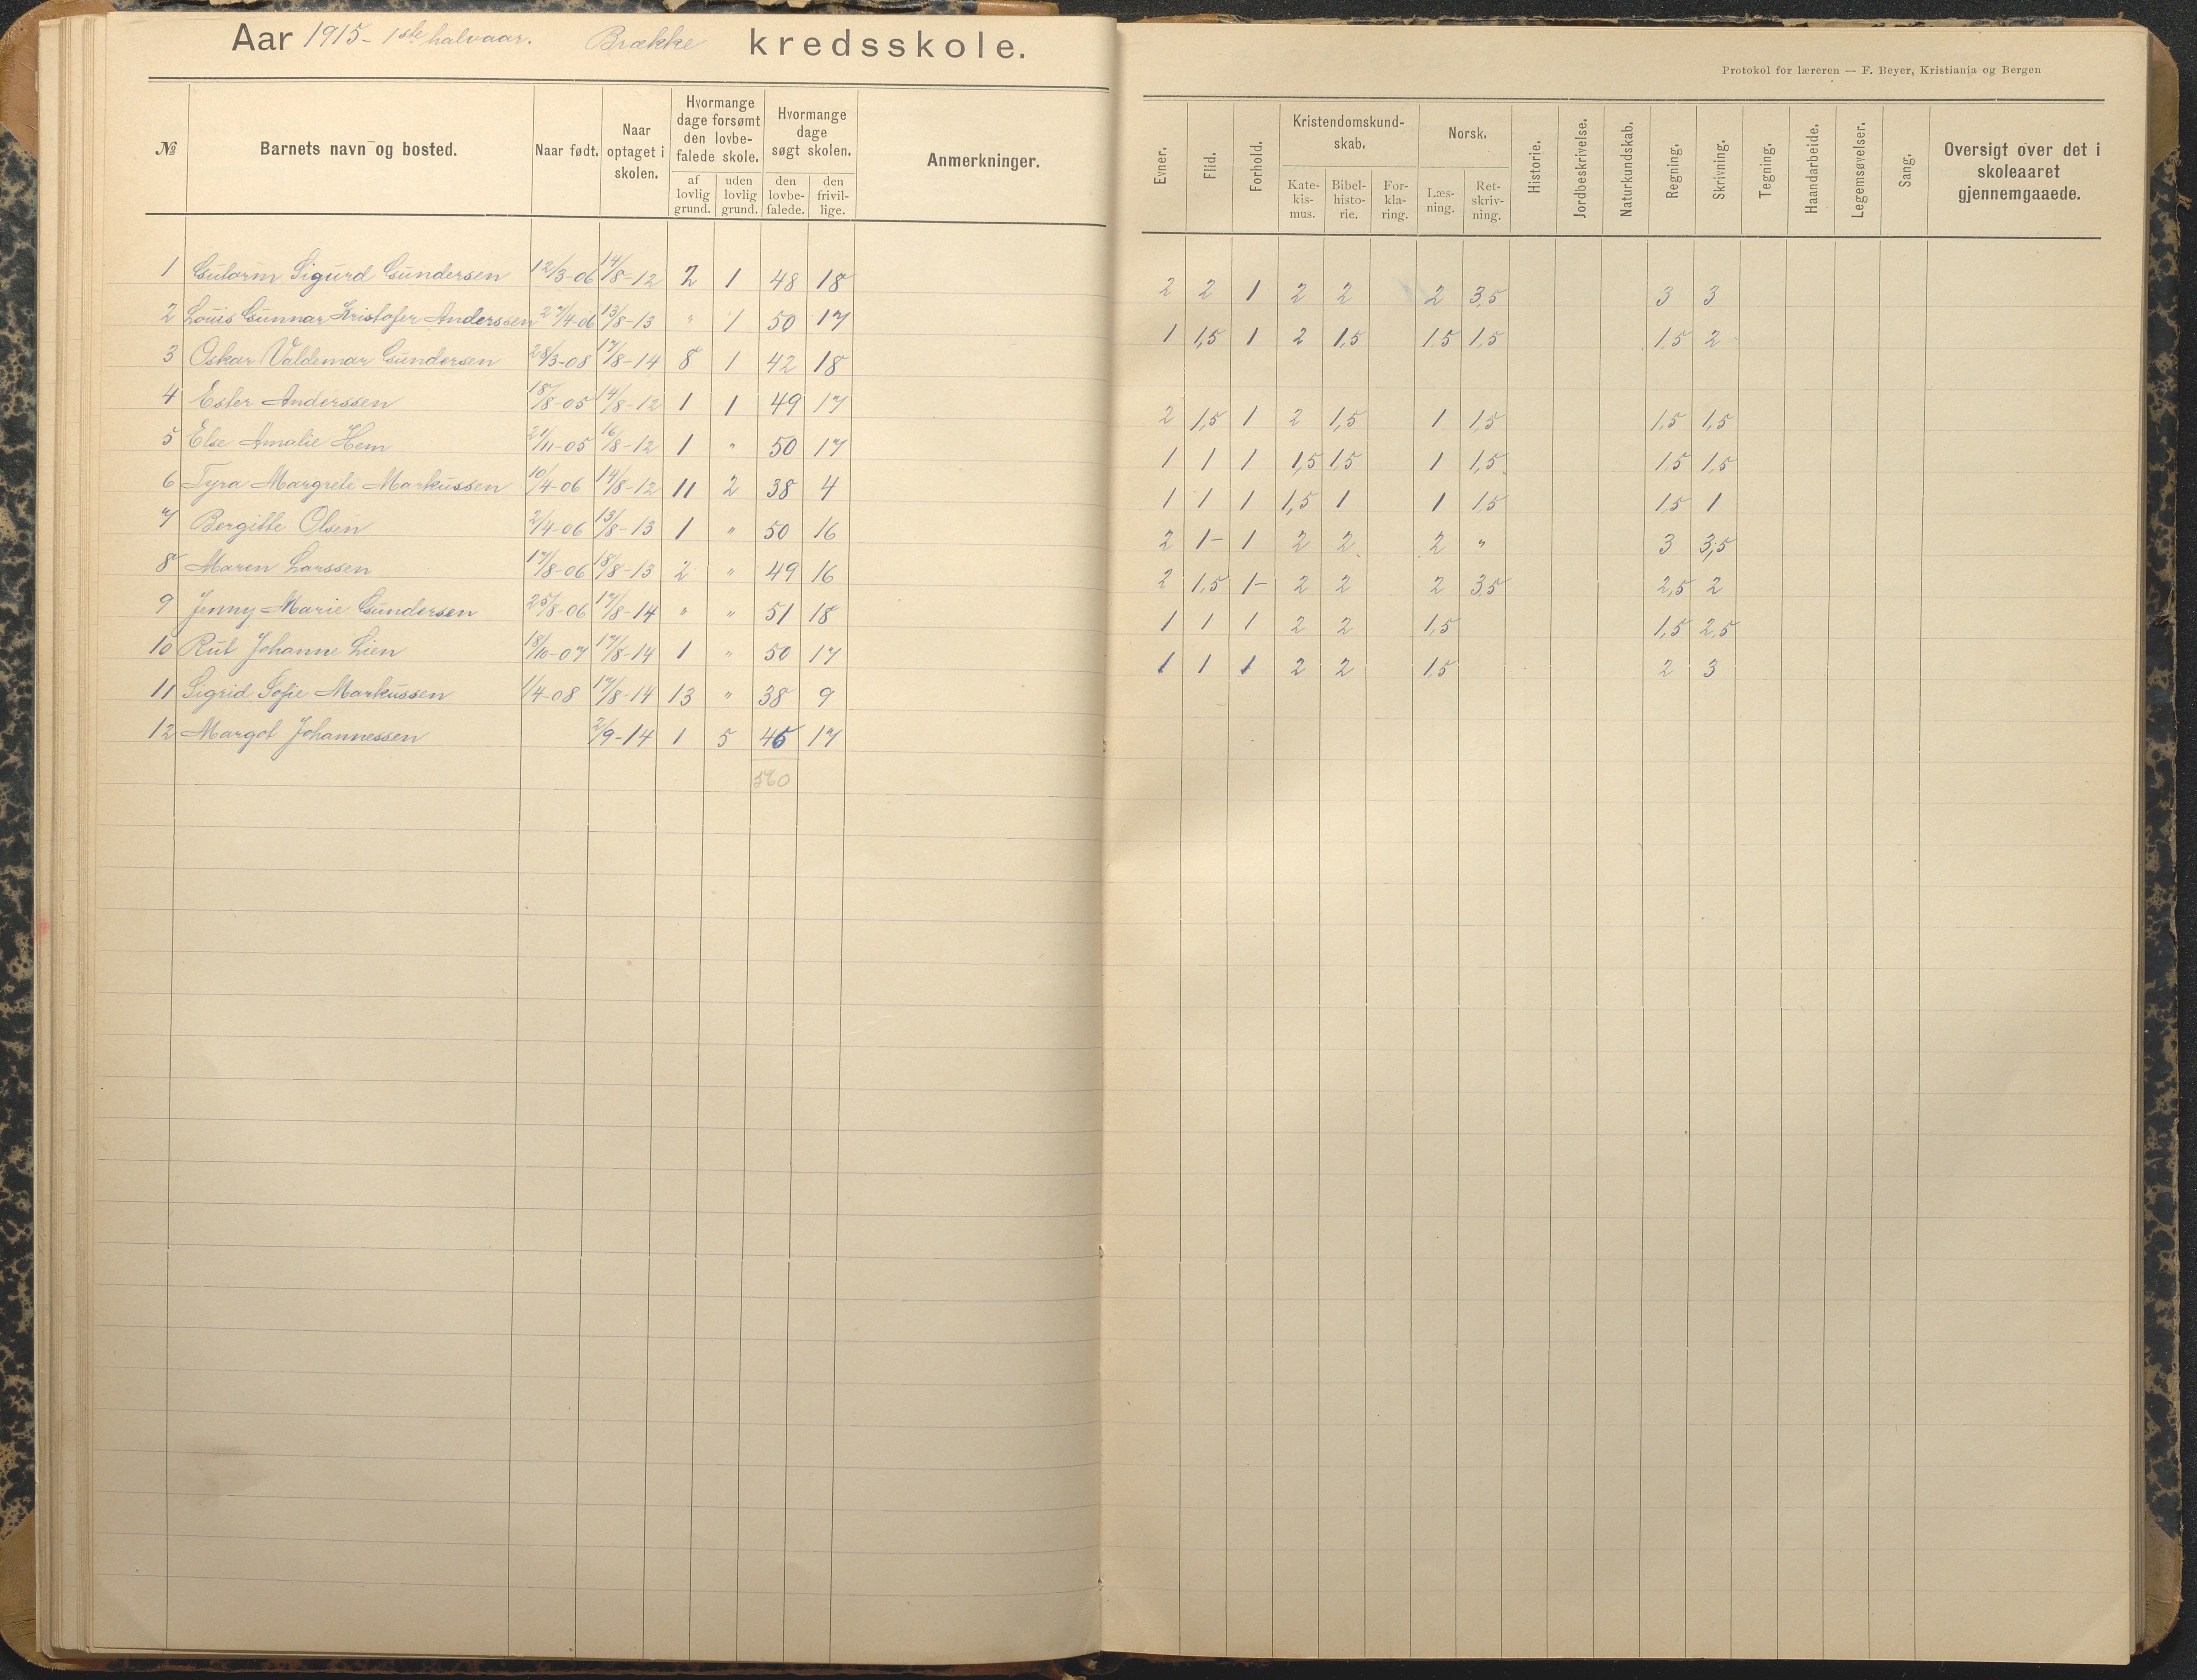 Aar 1915 - 1ste halvaar. Brække kredsskole.
Protokol for læreren — F. Beyer, Kristiania og Bergen
№ Barnets navn og bosted. Naar født. Naar optaget i skolen. Hvormange dage forsømt den lovbefalede skole. af lovlig grund. uden lovlig grund. Hvormange dage søgt skolen. den lovbefalede. den frivillige. Anmerkninger.
Evner. Flid. Forhold. Kristendomskundskab. Katekismus. Bibelhistorie. Forklaring. Norsk. Læsning. Retskrivning. Historie. Jordbeskrivelse. Naturkundskab. Regning. Skrivning. Tegning. Haandarbeide. Legemsøvelser. Sang. Oversigt over det i skoleaaret gjennemgaaede.
1 Gutorm Sigurd Gundersen 12/3-06 14/8-12 2 1 48 18 2 2 1 2 2 2 3,5 3 3
2 Louis Gunnar Kristofer Anderssen 27/4-06 13/8-13 " 1 50 17 1 1,5 1 2 1,5 1,5 1,5 1,5 2
3 Oskar Valdemar Gundersen 28/3-08 17/8-14 8 1 42 18
4 Ester Anderssen 18/8-05 14/8-12 1 1 49 17 2 1,5 1 2 1,5 1 1,5 1,5 1,5
5 Else Amalie Hem 21/11-05 16/8-12 1 " 50 17 1 1 1 1,5 1,5 1 1,5 1,5 1,5
6 Tyra Margrete Markussen 10/4-06 14/8-12 11 2 38 4 1 1 1 1,5 1 1 1,5 1,5 1
7 Bergitte Olsen 2/4-06 13/8-13 1 " 50 16 2 1- 1 2 2 2 " 3 3,5
8 Maren Larssen 17/8-06 18/8-13 2 " 49 16 2 1,5 1- 2 2 2 3,5 2,5 2
9 Jenny Marie Gundersen 25/8-06 17/8-14 " " 51 18 1 1 1 2 2 1,5 1,5 2,5
10 Rut Johanne Lien 18/10-07 17/8-14 1 " 50 17 1 1 1 2 2 1,5 2 3
11 Sigrid Sofie Markussen 1/4-08 17/8-14 13 " 38 9
12 Margot Johannessen 2/9-14 1 5 45 17
560